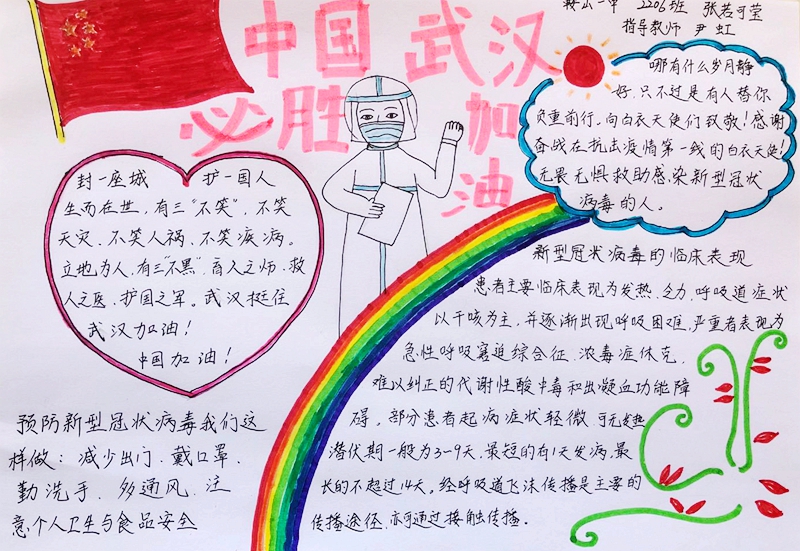 鞍山一中 2206班 张若可莹
指导教师 尹虹
中国 武汉
必胜 加
油
哪有什么岁月静
好,只不过是有人替你
负重前行。向白衣天使们致敬!感谢
奋战在抗击疫情第一线的白衣天使!
无畏无惧救助感染新型冠状
病毒的人。
封一座城 护一国人
生而在世,有三“不笑”,不笑
天灾、不笑人祸、不笑疾病。
立地为人,有三“不黑”,育人之师、救
人之医、护国之军。武汉挺住
武汉加油!
中国加油!
新型冠状病毒的临床表现
患者主要临床表现为发热、乏力,呼吸道症状
以干咳为主,并逐渐出现呼吸困难,严重者表现为
急性呼吸窘迫综合征、浓毒症休克,
难以纠正的代谢性酸中毒和出凝血功能障
碍,部分患者起病症状轻微,可无发热
潜伏期一般为3~9天,最短的有1天发病,最
长的不超过14天。经呼吸道飞沫传播是主要的
传播途径,亦可通过接触传播。
预防新型冠状病毒我们这
样做:减少出门、戴口罩、
勤洗手、多通风、注
意个人卫生与食品安全